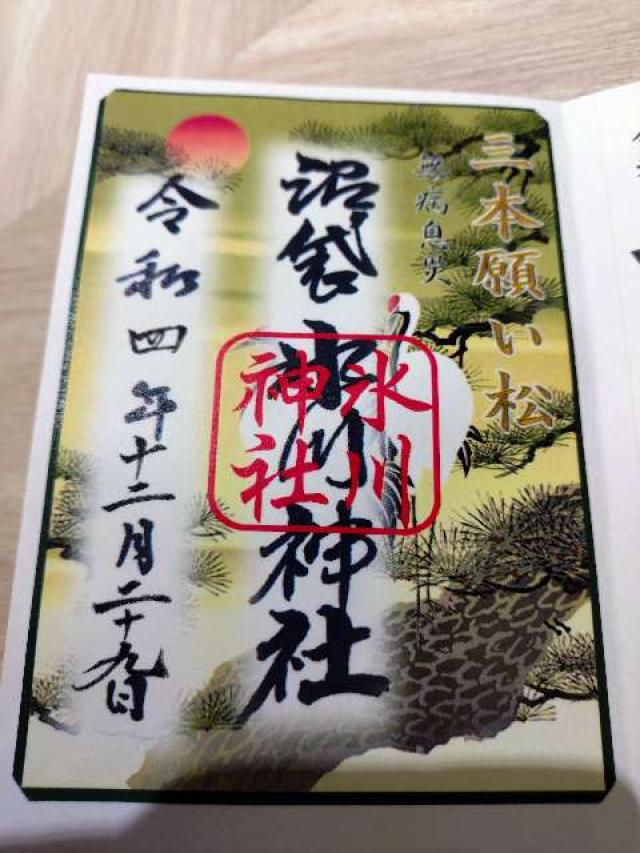 三本願い松
無病息災
沼袋氷川神社
氷川
神社
令和四年十二月二十九日